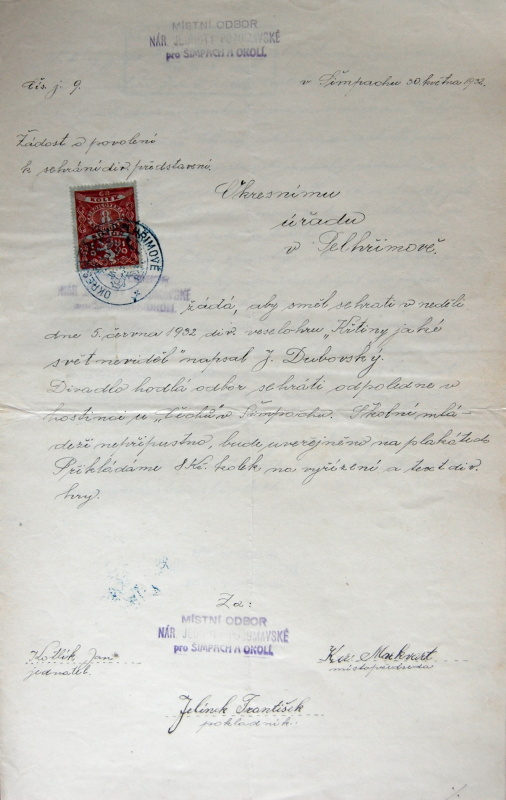 MÍSTNÍ ODBOR
NÁR. JEDNOTY POŠUMAVSKÉ
pro ŠIMPACH A OKOLÍ.
Čís. j. 9.
v Šimpachu 30. května 1932.
Žádost o povolení
k sehrání div. představení.
KOLEK
8
Okresnímu
úřadu
v Pelhřimově.
žádá, aby směl sehrati v neděli
dne 5. června 1932 div. veselohru "Křtiny jaké
svět neviděl" napsal J. Dubovský.
Divadlo hodlá odbor sehráti odpoledne v
hostinci u "Čechů" v Šimpachu. Školní mlá-
deži nepřípustno, bude uverejněno na plakátech
Přikládáme 8 Kč. kolek na vyřízení a text div.
hry.
Za:
MÍSTNÍ ODBOR
NÁR. JEDNOTY POŠUMAVSKÉ
pro ŠIMPACH A OKOLÍ.
Jan
jednatel.
Markvart
místopředseda
Jelínek František
pokladník.